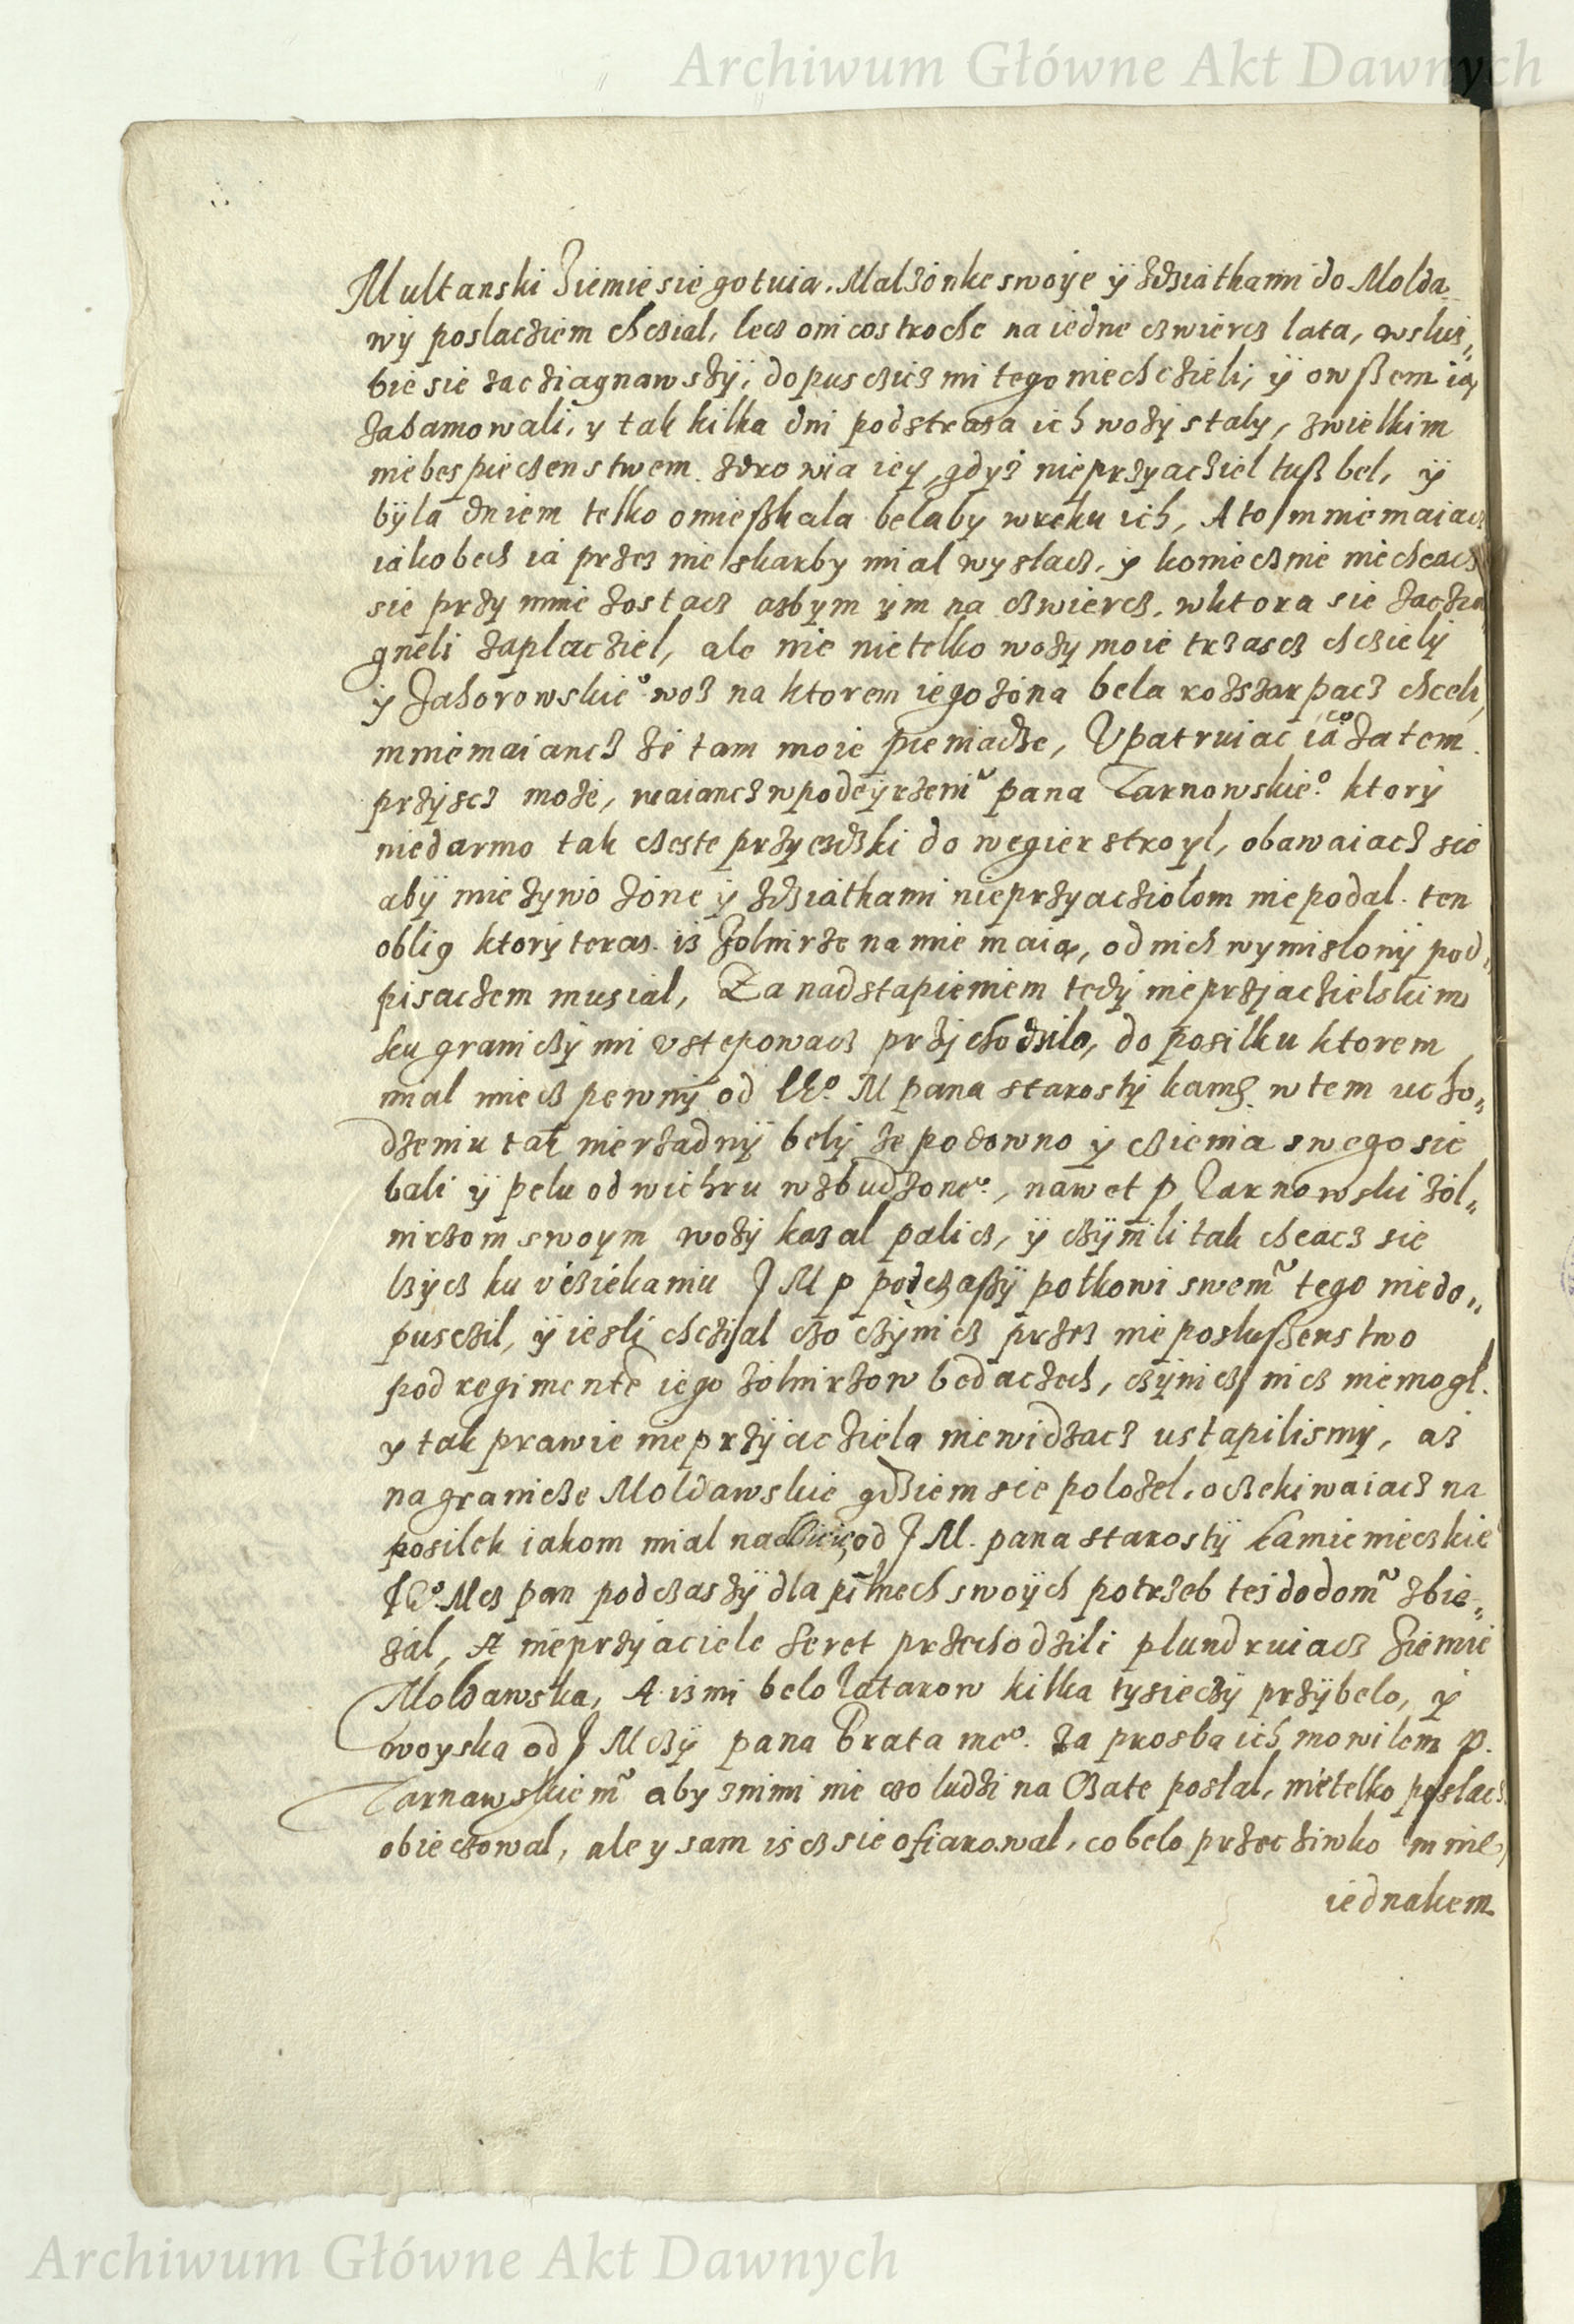 Archiwum Główne Akt Dawnych
Multanski Ziemie sie gotuia. Malzonke swoye ÿ zdziathami do Molda
wÿ poslacziem chczial, lecz oni cos troche na iedne czwiercz lata, w sluz„
bie sie zacziagnawszÿ, dopusczicz mi tego niechczieli, ÿ owßem ia
zahamowali, y tak kilka dni pod straza ich wozy staly, z wielkim
niebespieczenstwem zdrowia iey, gdyz nieprzyacziel tuß bel, ÿ
bÿla dniem telko omießkala belaby w reku ich, A to mniemaiacz
iakobech ia przez nie skarby mial wyslacz, ÿ koniecznie niechcacz
sie przy mnie zostacz azbym ÿm na czwiercz, w ktora sie zaczia
gneli zaplacziel, ale nie nietelko wozy moie trzascz chczielÿ
ÿ Zahorowskie° woz na ktorem iego zona bela rozszarpacz chceli,
mniemaiancz ze tam moie pieniadze, Upatruiac ia co zatem
przÿscz moze, maiancz w podeÿrzeniu pana Tarnowskie° ktorÿ
niedarmo tak czeste przyezdzki do wegier stroyl, obawaiacz sie
abÿ mie zywo zone ÿ zdziathami nieprzyacziolom niepodal. ten
oblig ktorÿ teraz iż Zolnirze na mie maia, od nich wymislonÿ pod„
pisaczem musial, Za nadstapieniem tedÿ nieprzÿaczielskim
ku graniczÿ mi vstepowacz przÿchodzilo, do posilku ktorem
mial miecz pewnÿ od W° M pana starostÿ kam. w tem ucho„
dzeniu tak nierzadnÿ belÿ ze podowno ÿ czienia swego sie
bali ÿ pelu od wichru wzbudzone°, nawet p Tarnowski zol„
nirzom swoym wozÿ kazal palicz, ÿ czÿnili tak chcacz sie
lzÿcz ku vcziekaniu J M p podczaßÿ polkowi swemu tego niedo„
pusczil, ÿ iesli chczial czo czÿnicz przez nieposlußenstwo
pod regimente iego zolnirzow bedaczech, czÿnicz nicz niemogl.
y tak prawie nieprzÿacziela niewidzacz ustapilismÿ, az
na granicze Moldawskie gdziem sie polozel, oczekiwaiacz na
posilek iakom mial od J M. pana starostÿ Kamienieczkie°
J° Mcz pan podczaszÿ dla pilnech swoÿch potrzeb tez do domu zbie„
zal, A nieprzyaciele Seret przechodzili plundruiacz Ziemie
Moldawska, A iz mi belo Tatarow kilka tysieczÿ przÿbelo, ÿ
woyska od J Mczÿ pana Brata me°. za prosba ich mowilem p.
Tarnawskiemu aby z nimi nie czo ludzi na Czate poslal, nietelko poslacz
obieczowal, ale y sam iscz sie ofiarowal, co belo przecziwko mnie,
iednakem
Archiwum Główne Akt Dawnych